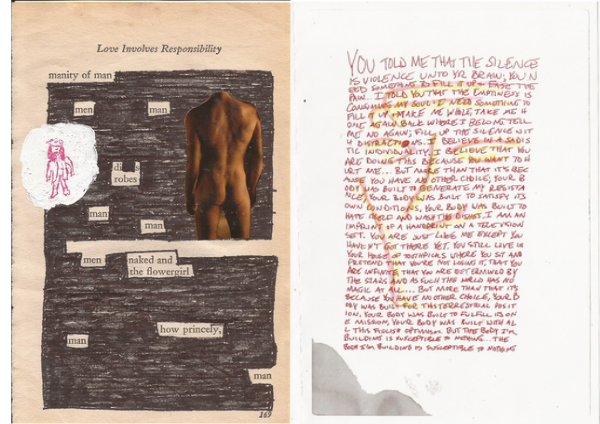 Love Involves Responsibility
manity of man
men
man
robes
man
man
men
naked and
the flowergirl
how princely,
man
man
169
YOU TOLD ME THAT THE SILENCE
IS VIOLENCE UNTO YR BRAIN, YOU N
EED SOMETHING TO FILL IT UP + EASE THE
PAIN. I TOLD YOU THAT THE EMPTINESS IS
CONSUMING MY SOUL. I NEED SOMETHING TO
FILL IT UP + MAKE ME WHOLE, TAKE ME H
OME AGAIN, BACK WHERE I BELONG, TELL
ME NO AGAIN, FILL UP THE SILENCE WIT
H DISTRACTIONS. I BELIEVE IN A SADIS
TIC INDIVIDUALITY. I BELIEVE THAT YOU
ARE DOING THIS BECAUSE YOU WANT TO H
URT ME... BUT MORE THAN THAT IT'S BEC
AUSE YOU HAVE NO OTHER CHOICE, YOUR B
ODY WAS BUILT TO GENERATE MY RESISTA
NCE, YOUR BODY WAS BUILT TO SATISFY ITS
OWN CONDITIONS, YOUR BODY WAS BUILT TO
HATE GIRLS AND WASH THE DISHES. I AM AN
IMPRINT OF A HANDPRINT ON A TELEVISION
SET. YOU ARE JUST LIKE ME EXCEPT YOU
HAVEN'T GOT THERE YET. YOU STILL LIVE IN
YOUR HOUSE OF TOOTHPICKS WHERE YOU SIT AND
PRETEND THAT YOU'RE NOT LOSING IT, THAT YOU
ARE INFINITE, THAT YOU ARE DETERMINED BY
THE STARS AND AS SUCH THE WORLD HAS NO
MAGIC AT ALL... BUT MORE THAN THAT IT'S
BECAUSE YOU HAVE NO OTHER CHOICE, YOUR B
ODY WAS BUILT FOR THIS TERRESTRIAL POSIT
ION, YOUR BODY WAS BUILT TO FULFILL ITS ON
E MISSION, YOUR BODY WAS BUILT WITH AL
L THIS OPTIMISM. BUT THE BODY I'M
BUILDING IS SUSCEPTIBLE TO NOTHING... THE
BODY I'M BUILDING IS SUSCEPTIBLE TO NOTHING